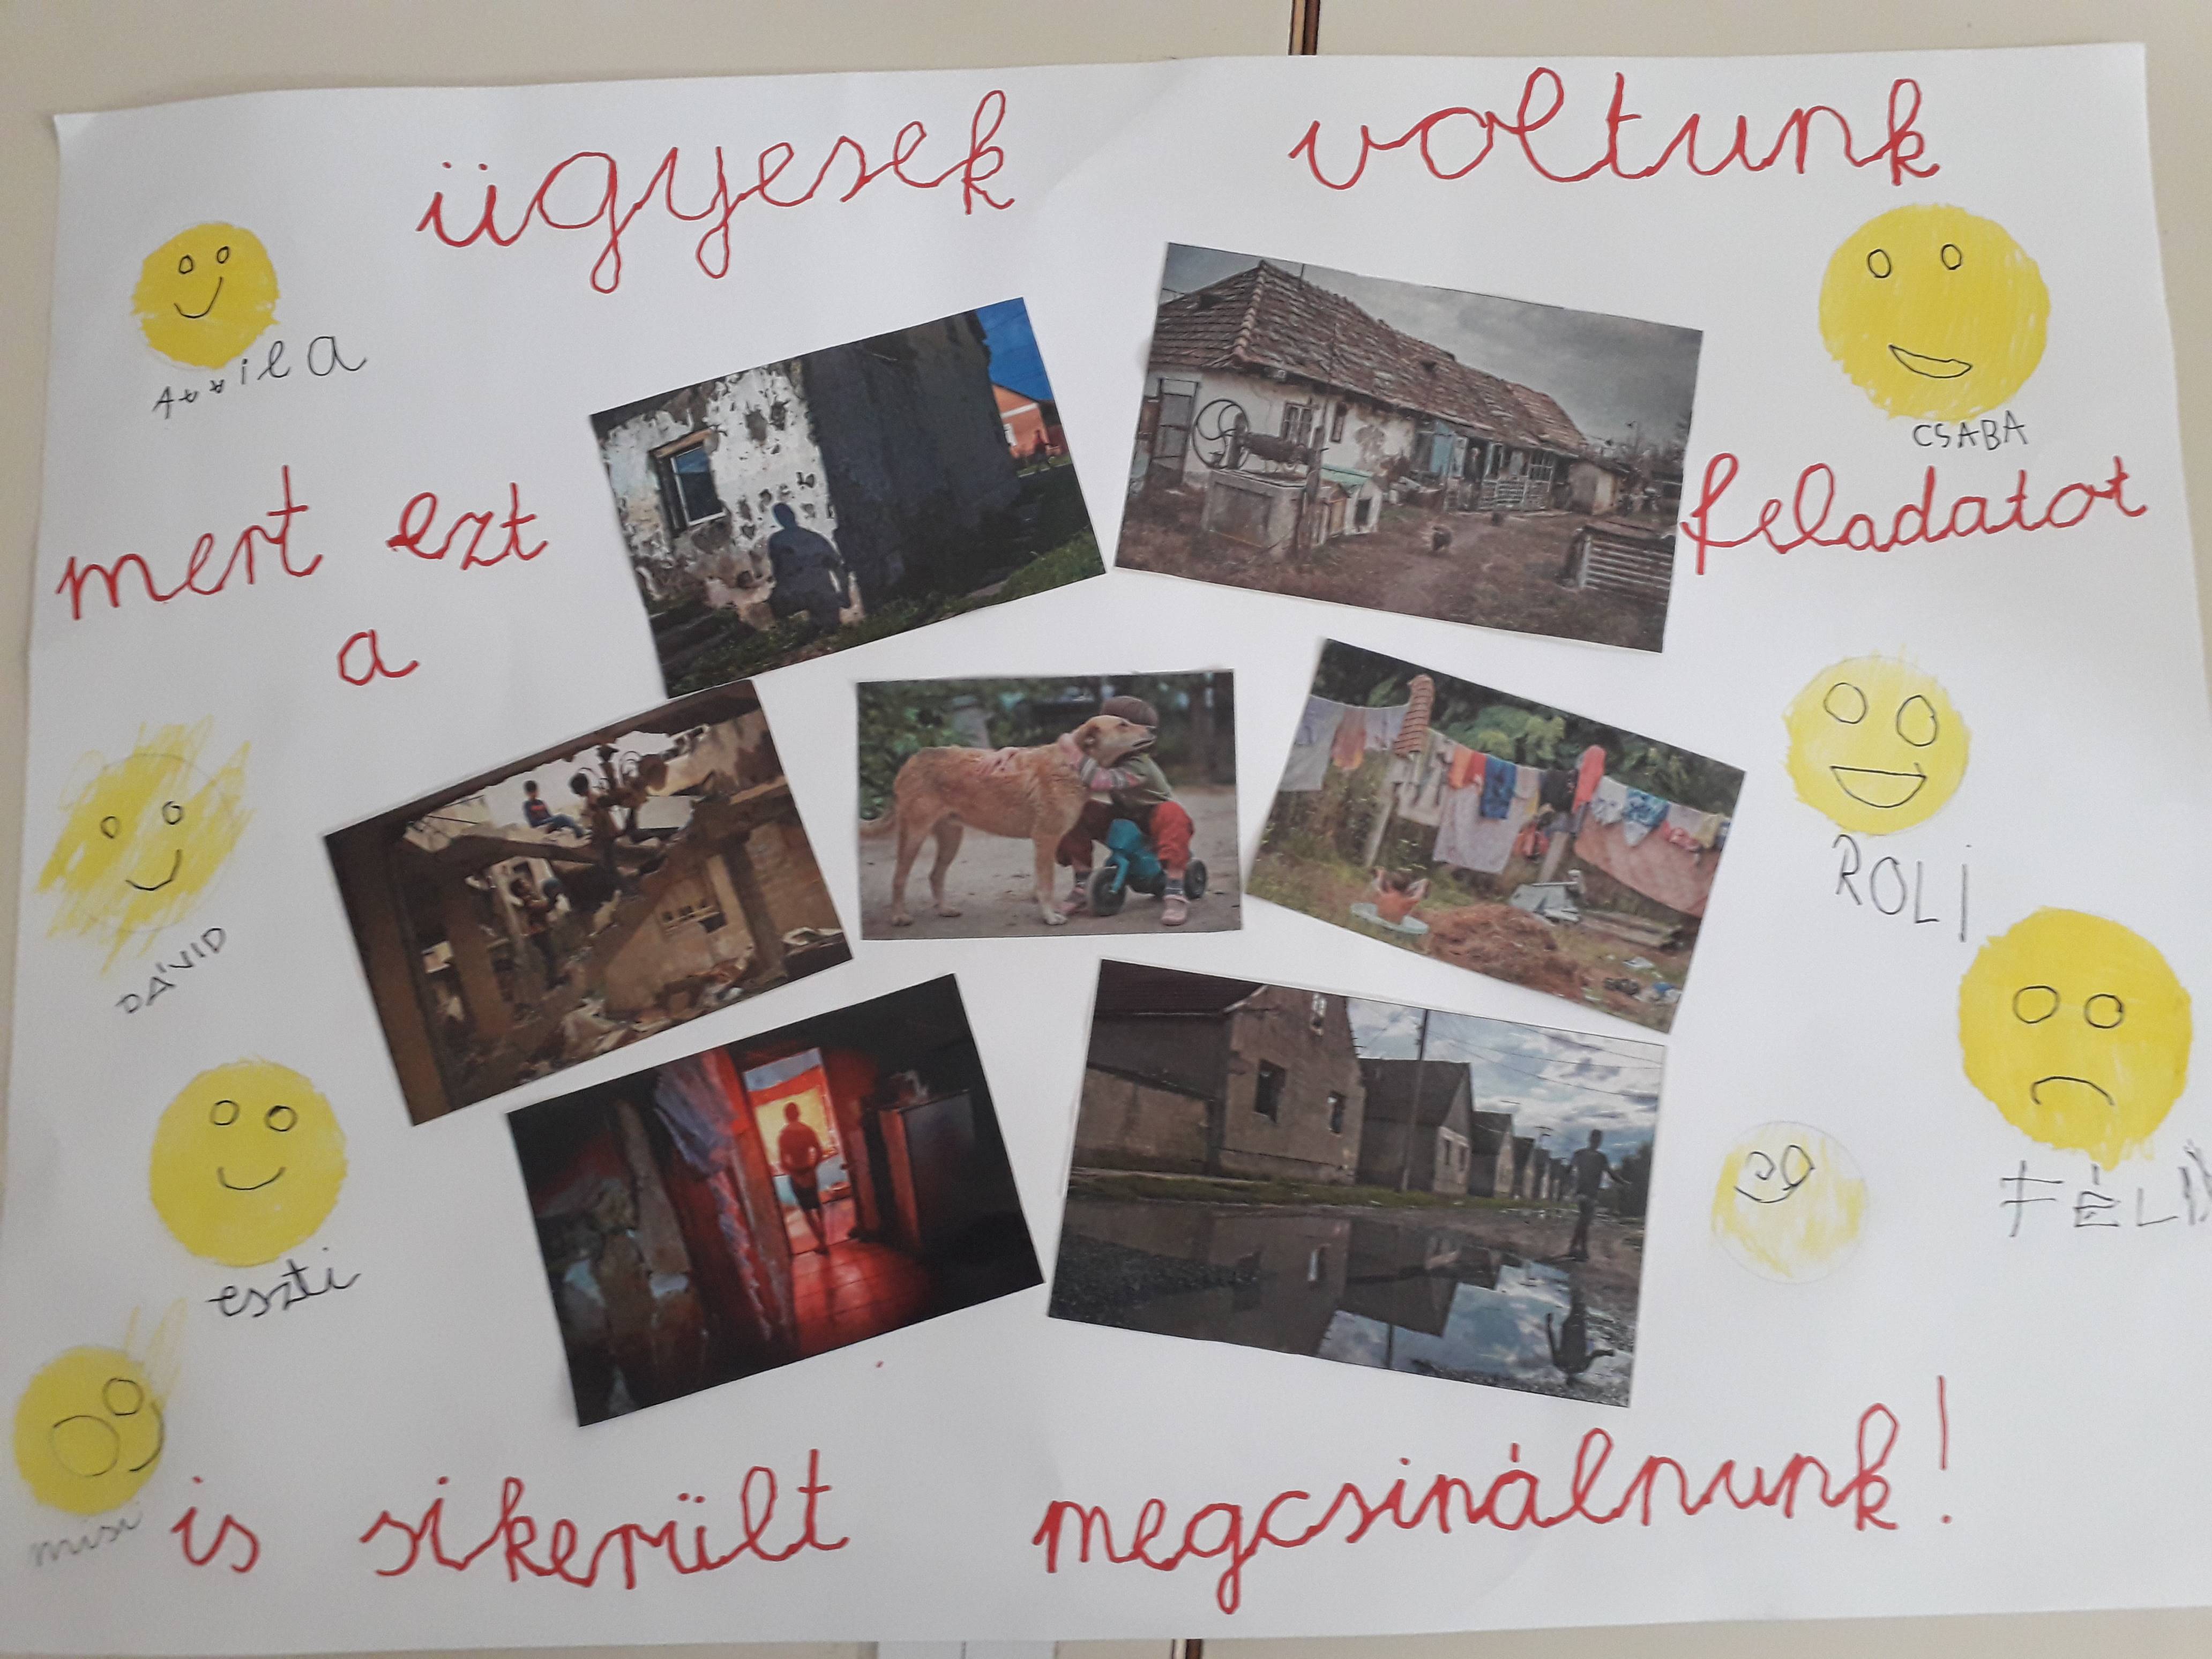 ügyesek voltunk
Attila
CSABA
mert ezt
a
feladatot
DÁVID
ROLI
eszti
misi
is sikerült megcsinálnunk!